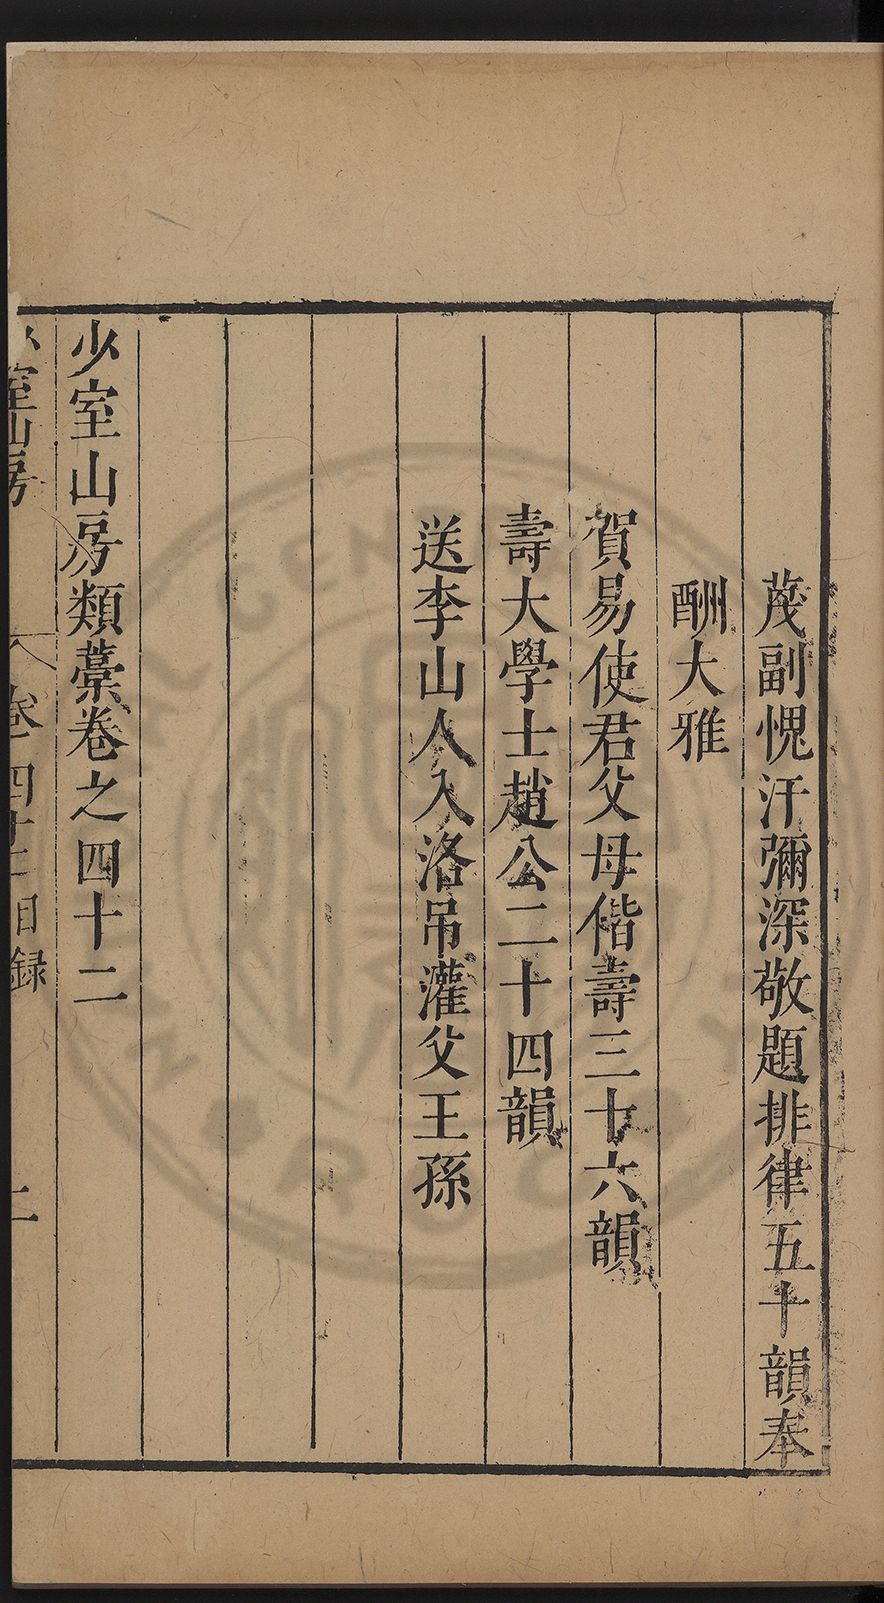 蔑副愧汗彌深敬題排律五十韻奉
酬大雅
賀易使君父母偕壽三十六韻
壽大學士趙公二十四韻
送李山人入洛吊灌父王孫
少室山房類藁卷之四十二
少室山房 卷四十二目録 二